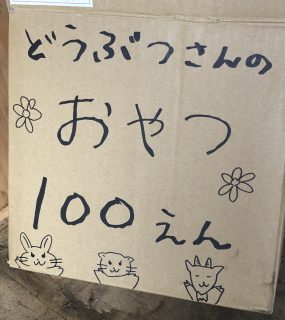 どうぶつさんの
おやつ
100えん